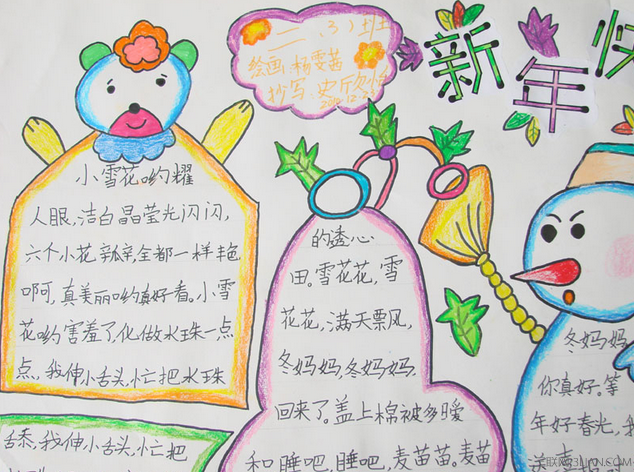 二、(3)班
绘画:杨雯茜
抄写:史欣怡
新年快
小雪花哟耀
人眼,洁白晶莹光闪闪,
六个小花瓣,全都一样艳
啊呵,真美丽哟真好看。小雪
花哟害羞了,化做水珠一点
点,我伸小舌头,忙把水珠
舌忝,我伸小舌头,忙把
的透心
田。雪花花,雪
花花,满天票风,
冬妈妈冬妈妈
回来了。盖上棉被多暧
和睡吧,睡吧,麦苗苗。麦苗
冬妈妈
你真好。等
年好春光,我